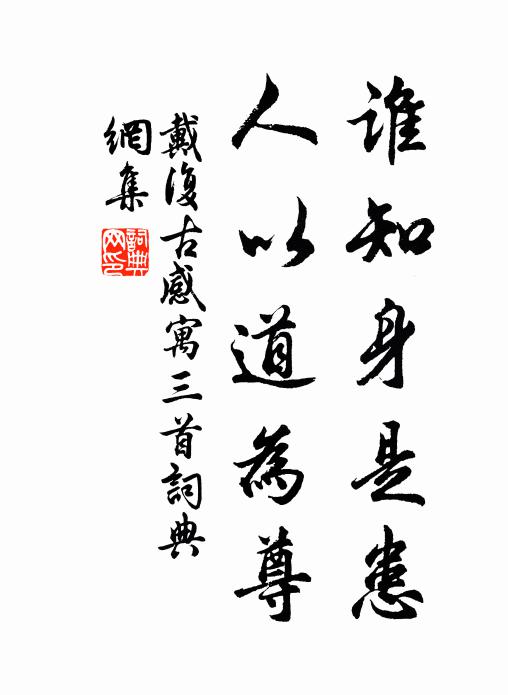 谁知身是患
人以道為尊
戴復古感寓三首詞典
網集
詞典網印